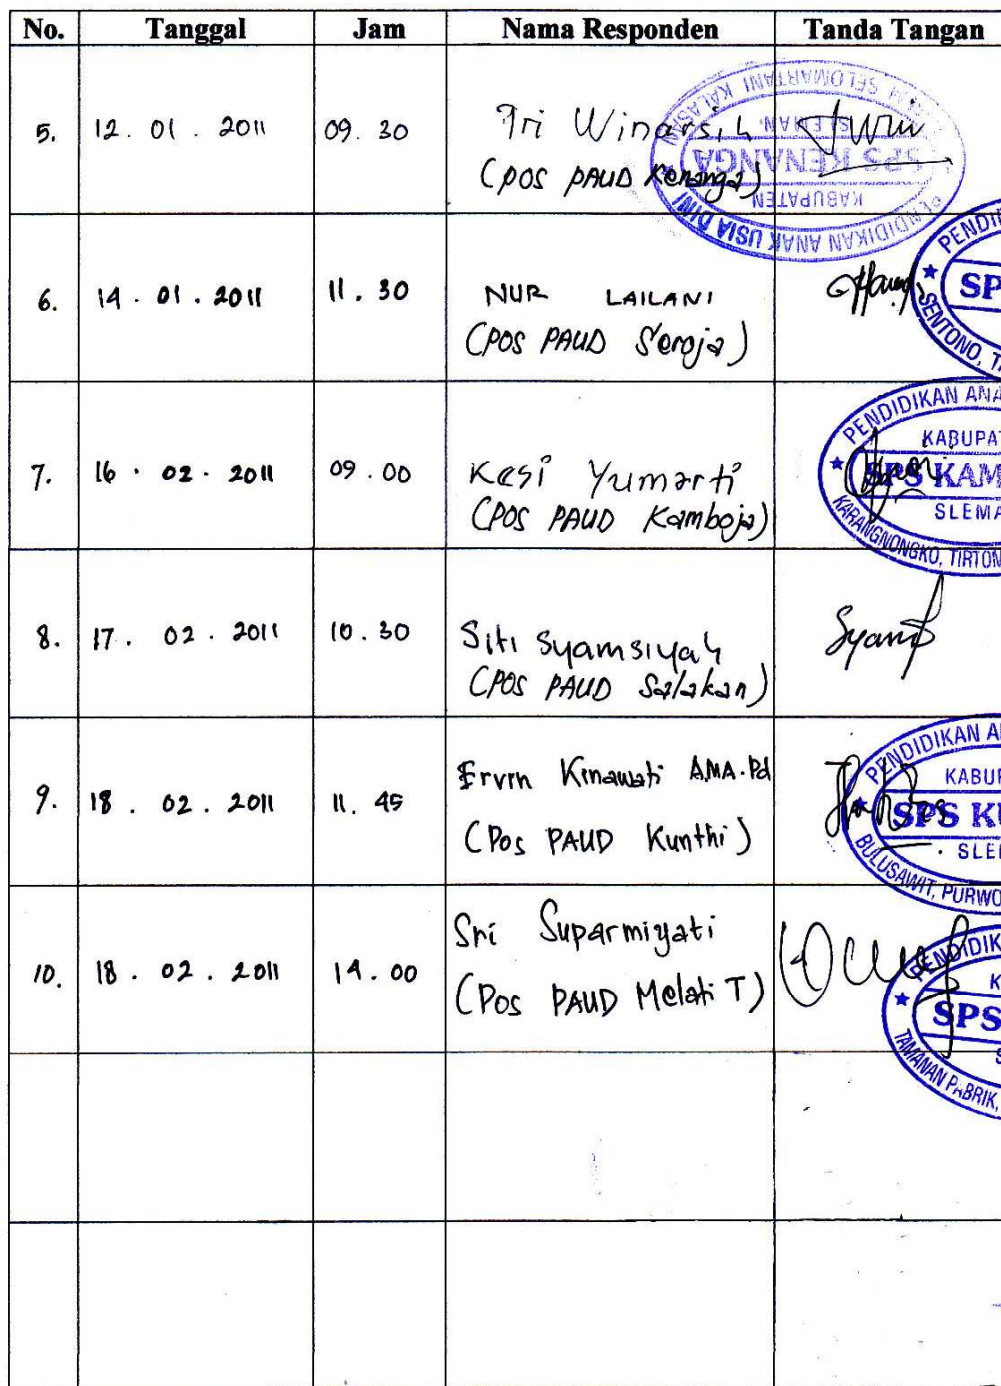 No. Tanggal Jam Nama Responden Tanda Tangan
5. 12. 01. 2011 09. 30 Tri Winarsih
(POS PAUD Kenanga)
SELOMARTANI KALASAN
SLEMAN.
SPS KENANGA
KABUPATEN
PENDIDIKAN ANAK USIA DINI
6. 14. 01. 2011 11. 30 NUR LAILANI
(POS PAUD Seroja)
PENDIDI
SP
SENTONO, T
7. 16. 02. 2011 09.00 Kasi Yumarti
(POS PAUD Kamboja)
PENDIDIKAN ANA
KABUPAT
SPS KAM
SLEMA
KARANGNONGKO, TIRTOM
8. 17. 02. 2011 10.30 Siti Syamsiyah
(POS PAUD Salakan)
9. 18. 02. 2011 11. 45 Ervin Kinawati AMA.Pd
(Pos PAUD Kunthi)
PENDIDIKAN A
KABUP
SPS KU
SLE
BULUSAWIT, PURWO
10. 18. 02. 2011 14.00 Sri Suparmiyati
(Pos PAUD Melati T)
PENDIDIK
K
SPS
S
TAMANAN PABRIK,